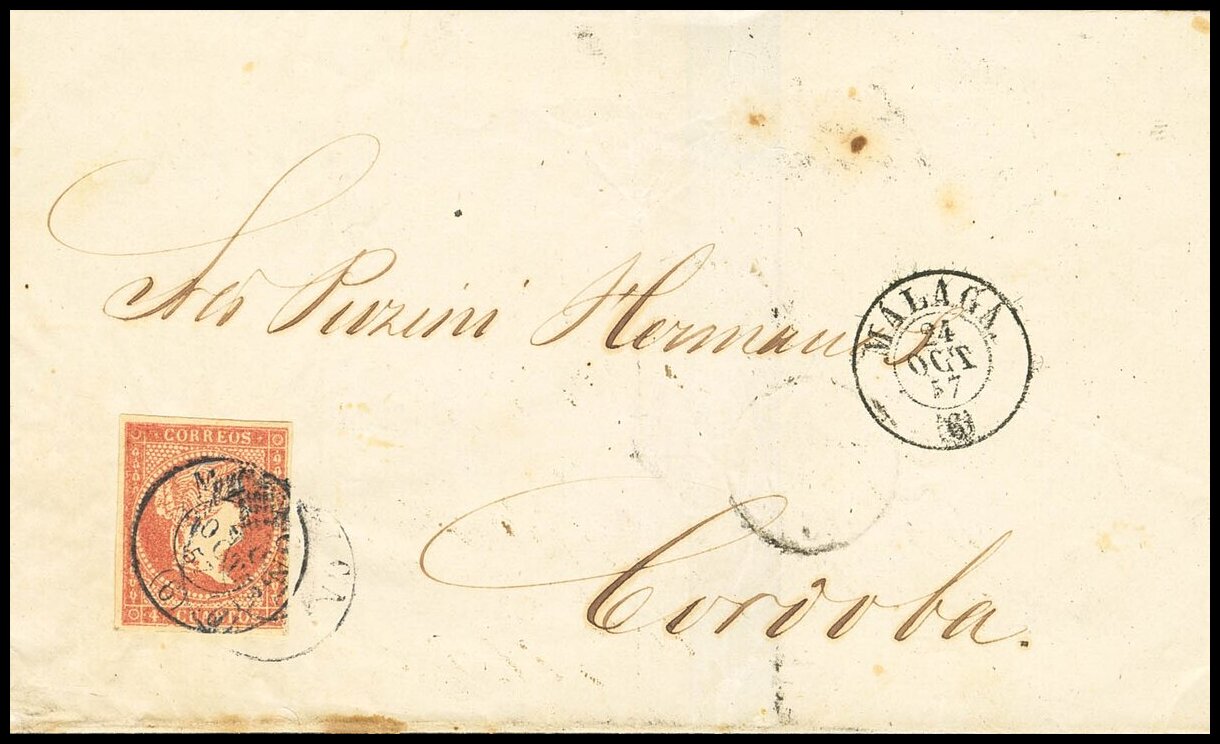 Sres Puzini Hermans
Cordoba.
MALAGA
24
OCT
57
(6)
CORREOS
4 CUARTOS